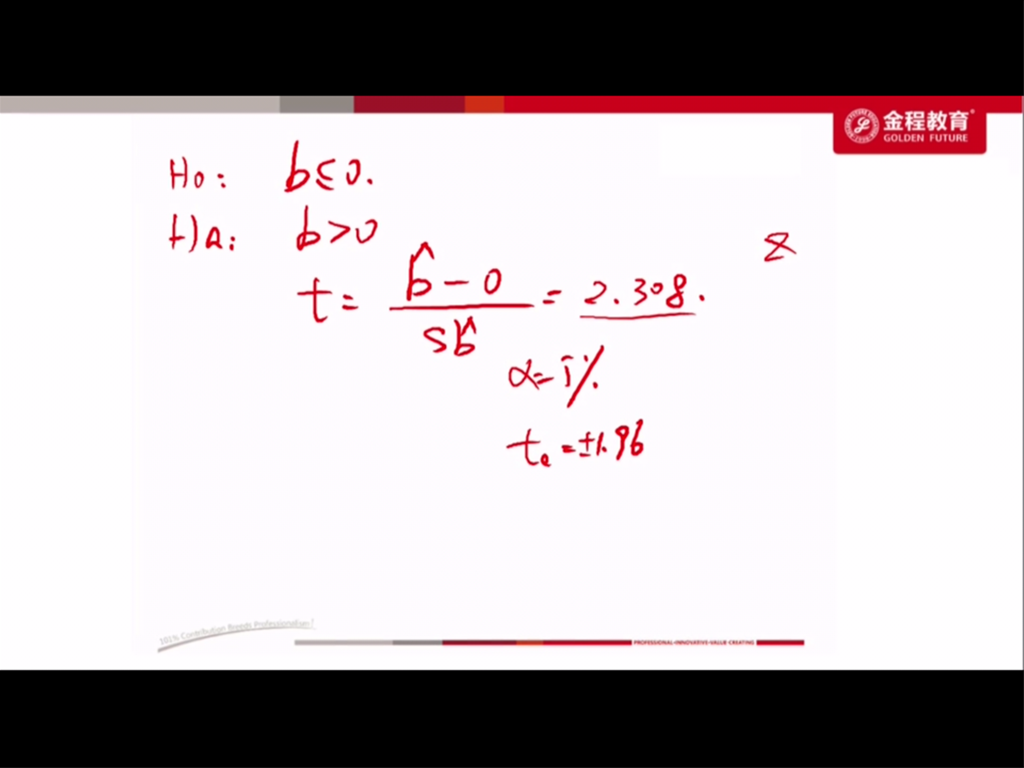 金程教育®
GOLDEN FUTURE
H0: b≤0.
HA: b>0
t = (b̂-0)/Sb̂ = 2.308.
α=5%
tc=±1.96
101% Contribution Breeds Professionalism
PROFESSIONAL·INNOVATIVE·VALUE CREATING